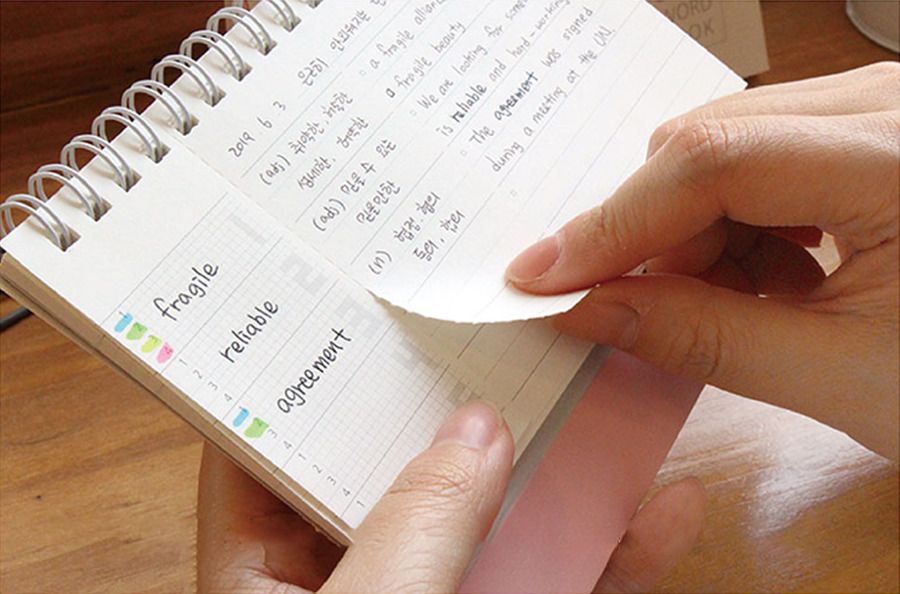 2019 6 3 은근히 안 외워지는
(adj) 취약한, 허술한
섬세한,
a fragile
a fragile beauty
(adj) 믿을 수 있는
믿을만한
We are looking for
is reliable and hard-working
(n) 협정, 협의
동의, 합의
The agreement was signed
during a meeting at the UN.
fragile
1 2 3 4
reliable
1 2 3 4
agreement
1 2 3 4
1
WORD